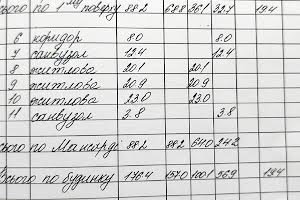 ього по 1му поверху 88.2 68.8 36.1 32.7 19.4
6 коридор 8.0 8.0
7 санвузол 12.4 12.4
8 житлова 20.1 20.1
9 житлова 20.9 20.9
10 житлова 23.0 23.0
11 санвузол 3.8 3.8
сього по Мансарді 88.2 88.2 64.0 24.2
Всього по будинку 176.4 157.0 100.1 56.9 19.4